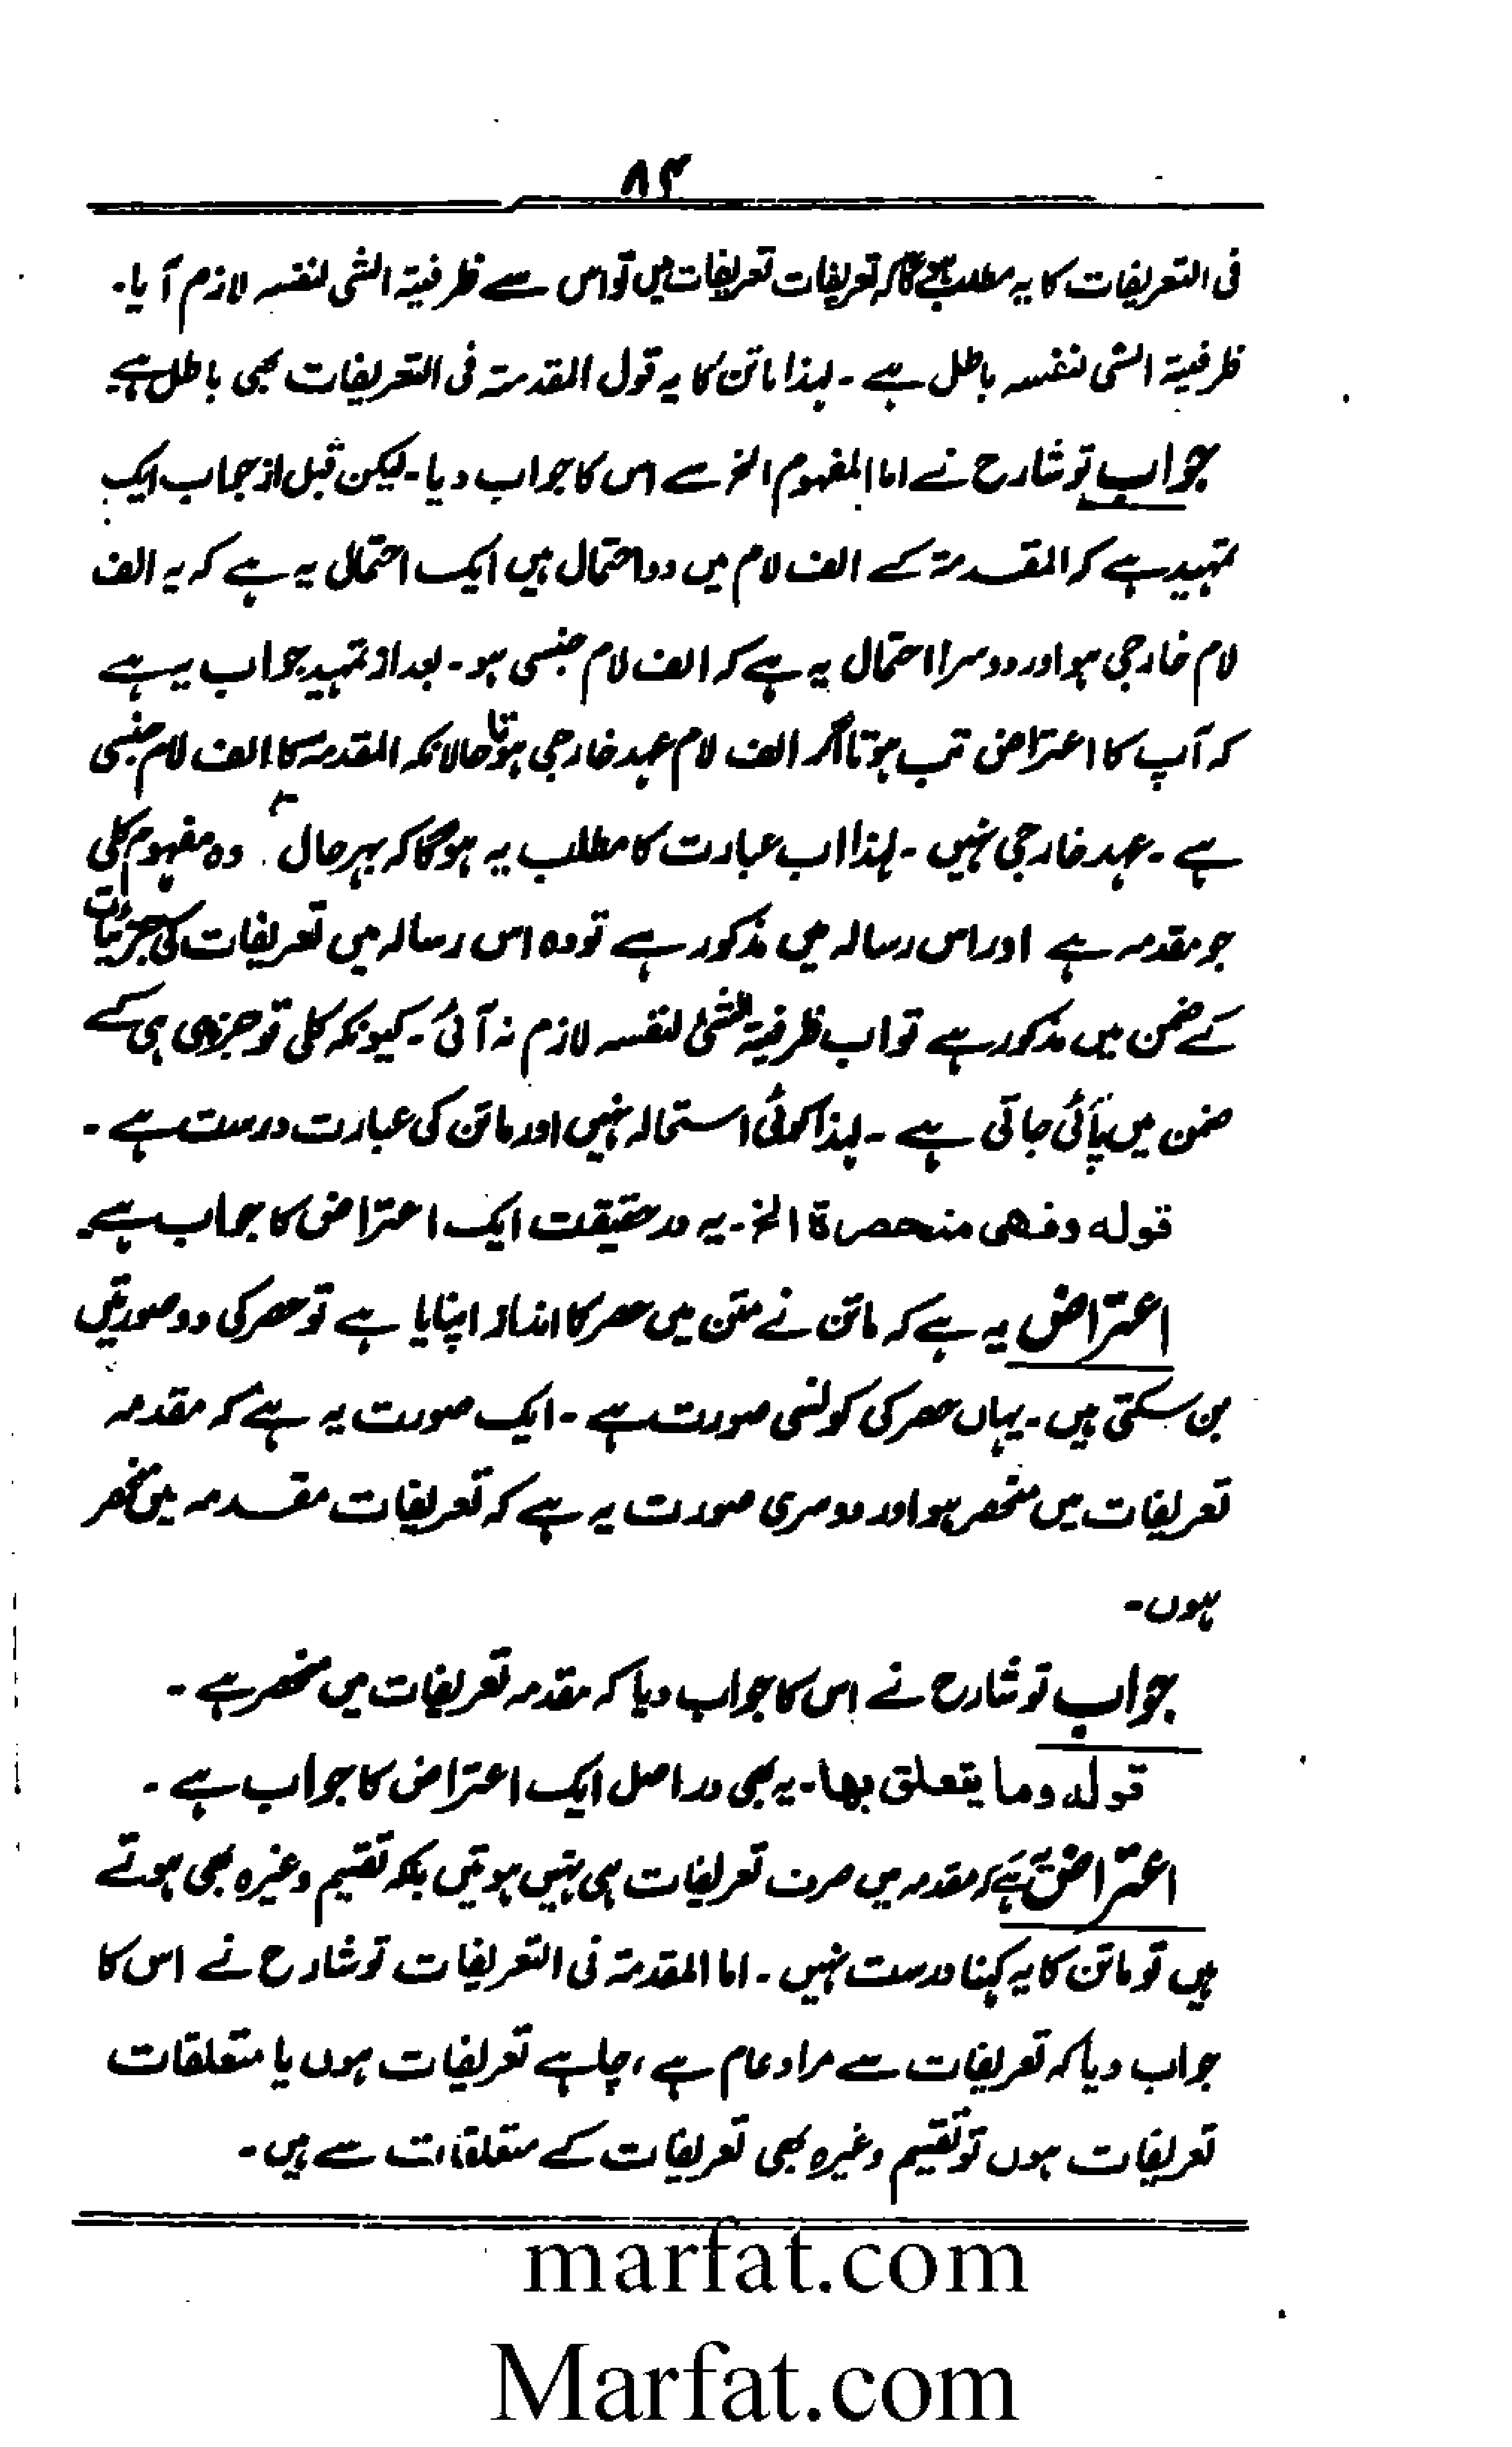 ۸۴
فی التعریفات کا یہ مطلب ہے گا کہ تعریفات تعریفات میں تو اس سے ظرفیۃ الشی لنفسہ لازم آیا۔
ظرفیۃ الشی لنفسہ باطل ہے ۔ لہذا ماتن کا یہ قول المقدمۃ فی التعریفات بھی باطل ہے
جواب تو شارح نے اما المفہوم الخ سے اس کا جواب دیا ۔ لیکن قبل از جواب ایک
تمہید ہے کہ المقدمۃ کے الف لام میں دو احتمال ہیں ایک احتمال یہ ہے کہ یہ الف
لام خارجی ہو اور دوسرا احتمال یہ ہے کہ الف لام جنسی ہو ۔ بعد از تمہید جواب یہ ہے
کہ آپ کا اعتراض تب ہوتا اگر الف لام عہد خارجی ہوتا حالانکہ المقدمہ کا الف لام جنسی
ہے ۔ عہد خارجی نہیں ۔ لہذا اب عبارت کا مطلب یہ ہوگا کہ بہر حال وہ مفہوم کلی
جو مقدمہ ہے اور اس رسالہ میں مذکور ہے تو وہ اس رسالہ میں تعریفات کی جزئیات
کے ضمن میں مذکور ہے تو اب ظرفیۃ الشئ لنفسہ لازم نہ آئی ۔ کیونکہ کلی تو جزئی ہی کے
ضمن میں پائی جاتی ہے ۔ لہذا کوئی استحالہ نہیں اور ماتن کی عبارت درست ہے ۔
قولہ وفھی منحصرۃ الخ ۔ یہ در حقیقت ایک اعتراض کا جواب ہے
اعتراض یہ ہے کہ ماتن نے متن میں حصر کا انداز اپنایا ہے تو حصر کی دو صورتیں
بن سکتی ہیں ۔ یہاں حصر کی کونسی صورت ہے ۔ ایک صورت یہ ہے کہ مقدمہ
تعریفات میں منحصر ہو اور دوسری صورت یہ ہے کہ تعریفات مقدمہ میں منحصر
ہوں ۔
جواب تو شارح نے اس کا جواب دیا کہ مقدمہ تعریفات میں منحصر ہے ۔
قولہ وما یتعلق بھا ۔ یہ بھی در اصل ایک اعتراض کا جواب ہے ۔
اعتراض یہ ہے کہ مقدمہ میں صرف تعریفات ہی نہیں ہوتیں بلکہ تقسیم وغیرہ بھی ہوتے
ہیں تو ماتن کا یہ کہنا درست نہیں ۔ اما المقدمۃ فی التعریفات تو شارح نے اس کا
جواب دیا کہ تعریفات سے مراد عام ہے ، چاہے تعریفات ہوں یا متعلقات
تعریفات ہوں تو تقسیم وغیرہ بھی تعریفات کے متعلقات سے ہیں ۔
marfat.com
Marfat.com